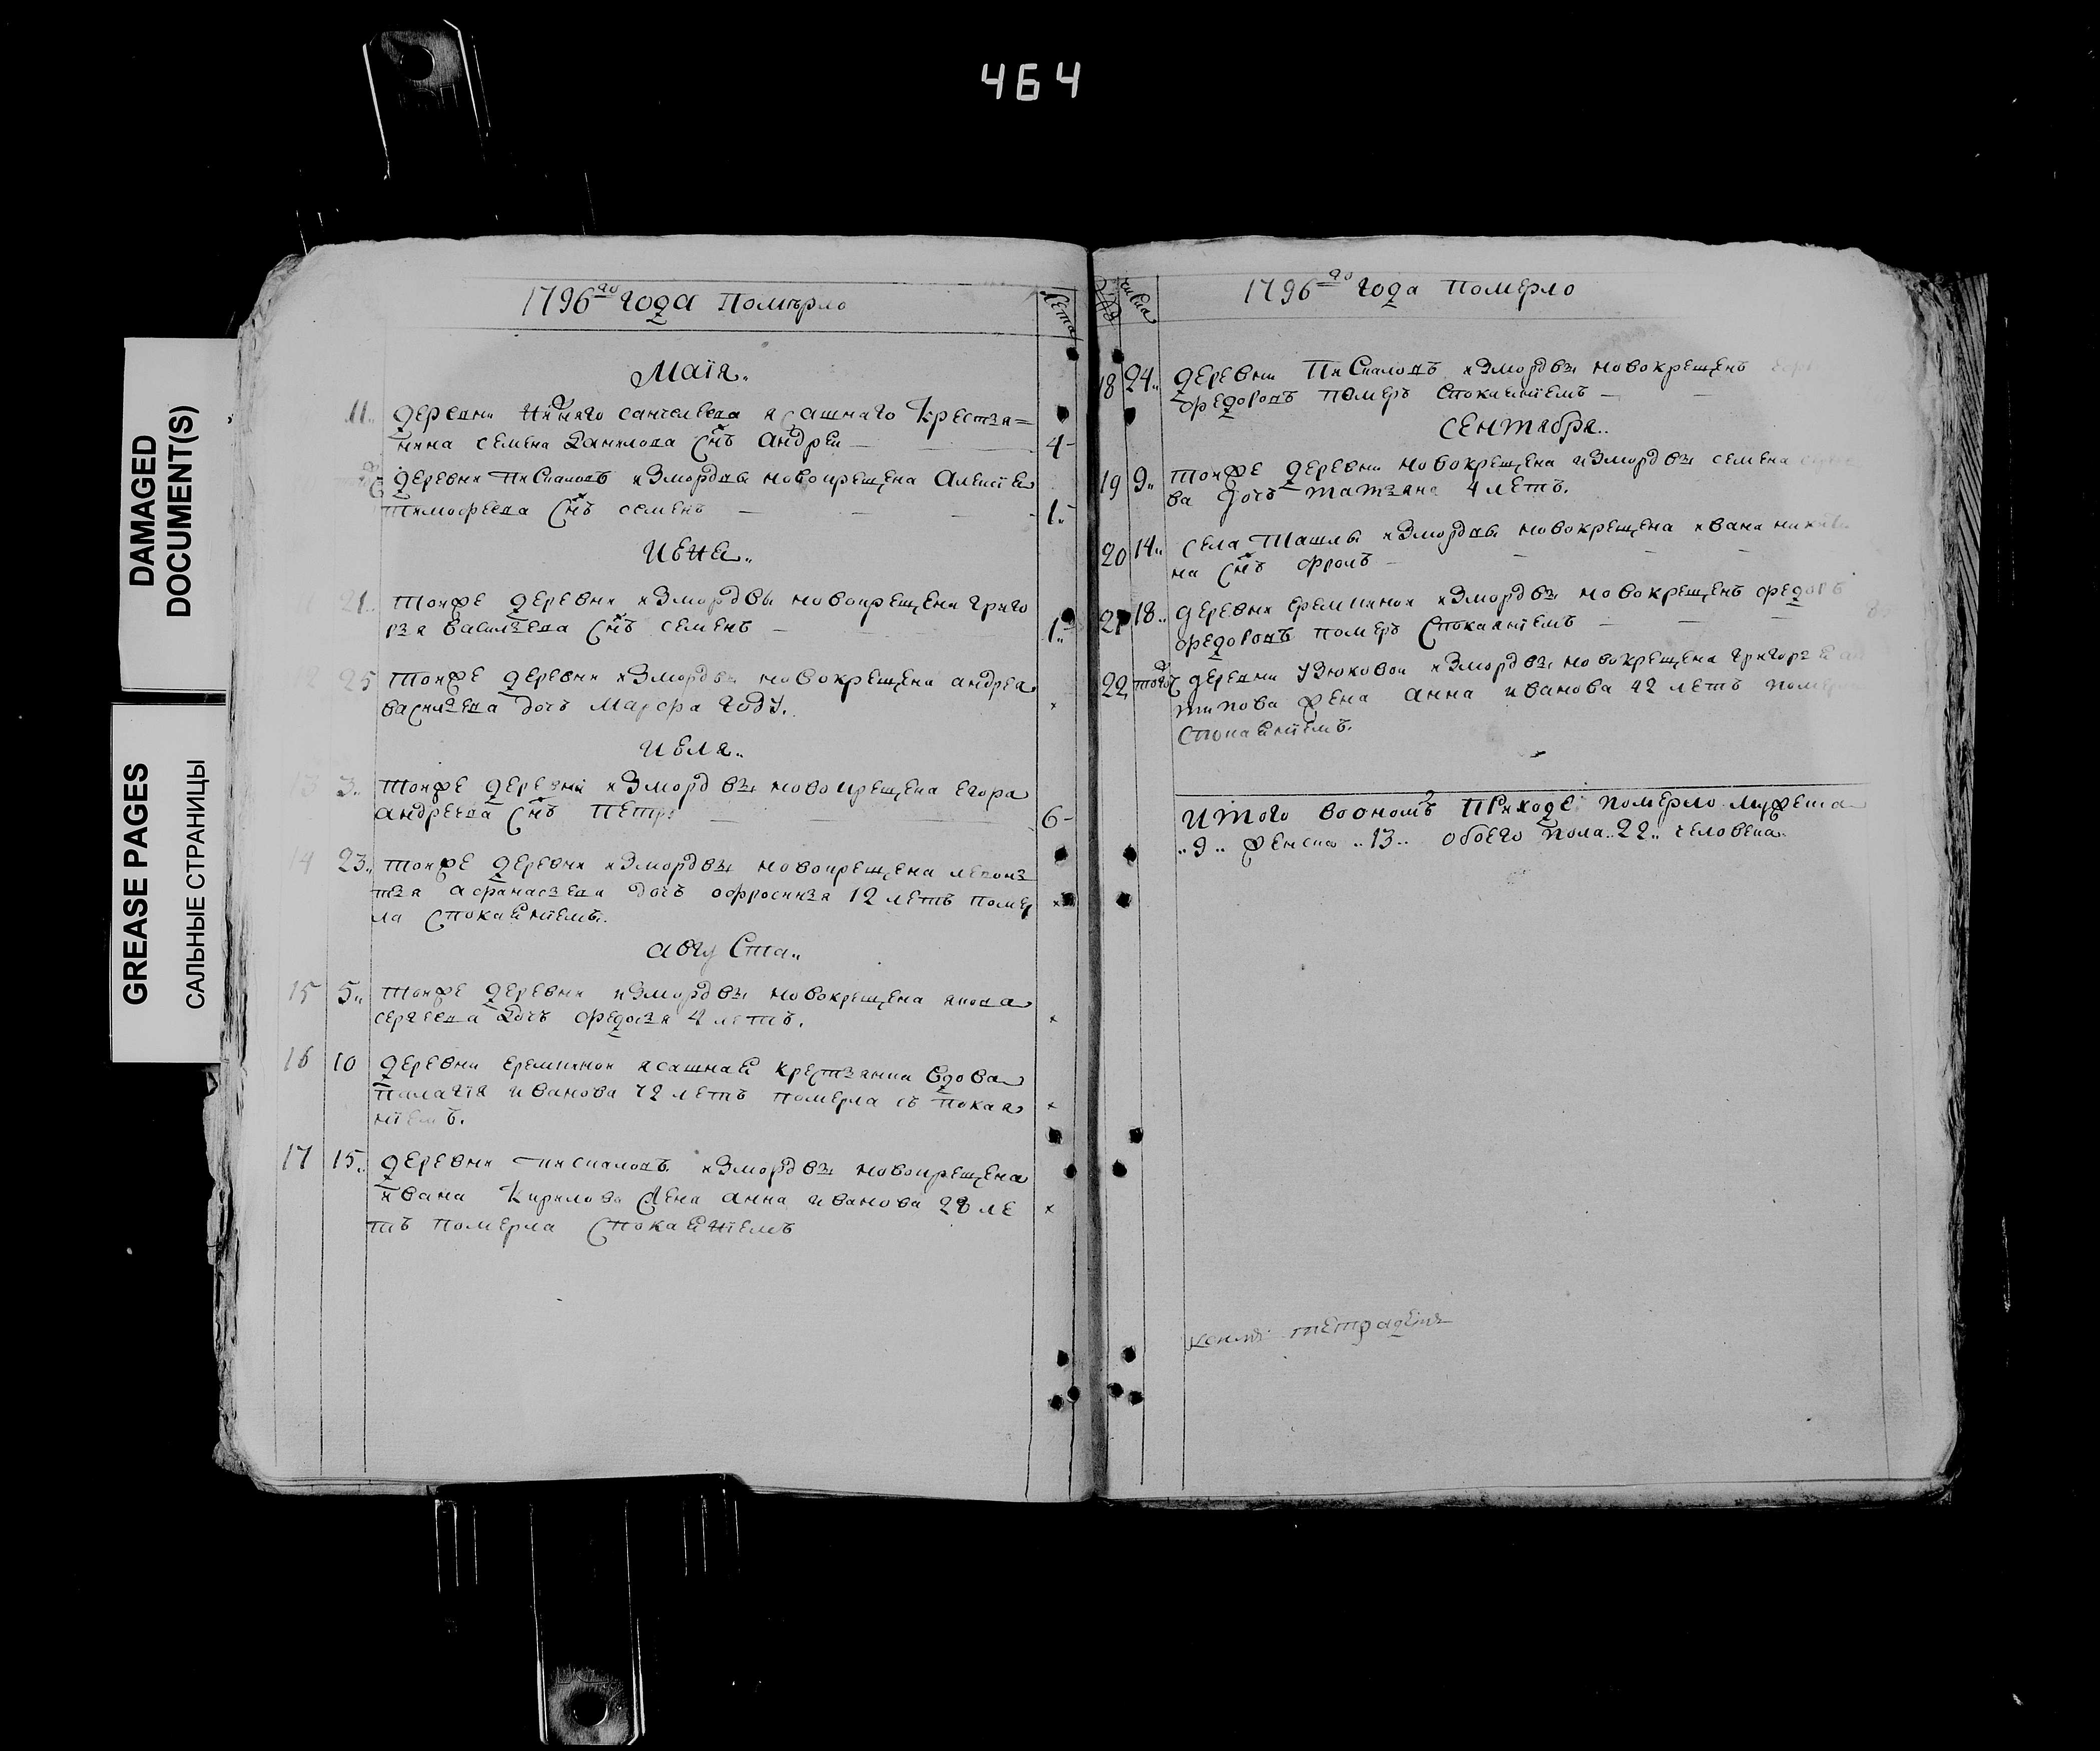 464
DAMAGED
DOCUMENT(S)
GREASE PAGES
САЛЬНЫЕ СТРАНИЦЫ
1796го года Померло
лета
Маїя..
11.. деревни ясашнаго крестья=
нина семена Данилова снъ Андреи 4
деревни Пискаловъ измордвы новокрещена Алексѣя
тимофеева снъ семенъ 1..
Июня..
21.. тоиже деревни измордвы новокрещена григо
рья васильева снъ семенъ 1..
12 25 тоиже деревни измордвы новокрещена андрея
васильева дочь Марфа году.. ×
Июля..
13 3.. тоиже деревни измордвы новокрещена Егора
андреева снъ Петръ 6
14 23.. тоиже деревни измордвы новокрещена леонь
тья афанасьева дочь офросинья 12 летъ помер ×
ла спокаянїемъ.
августа..
15 5.. тоиже деревни измордвы новокрещена якова
сергеева дочь федосья 4 летъ. ×
16 10 деревни еремкинои ясашнаи крестьянки вдова
Палагїя иванова 72 летъ померла съ покая ×
нїемъ.
17 15.. деревни пискаловъ измордвы новокрещена
ивана Кирилова жена анна иванова 28 ле ×
тъ померла спокаянїемъ
1796го года Померло
числа
18 24.. деревни Пискаловъ измордвы новокрещенъ
федоровъ померъ спокаянїемъ
Сентября..
19 9.. тоиже деревни новокрещена измордвы семена
ва дочь татьяна 4 летъ.
20 14.. села Ташлы измордвы новокрещена ивана никити
на снъ фролъ
21 18.. деревни еремкинои измордвы новокрещенъ федоръ
федоровъ померъ спокаянїемъ
22 тогожъ деревни Узюковои измордвы новокрещена григорья
типова жена анна иванова 42 летъ померла
спокаянїемъ.
Итого воономъ Приходе померло мужеска
..9.. женска ..13.. обоего пола..22.. человека.